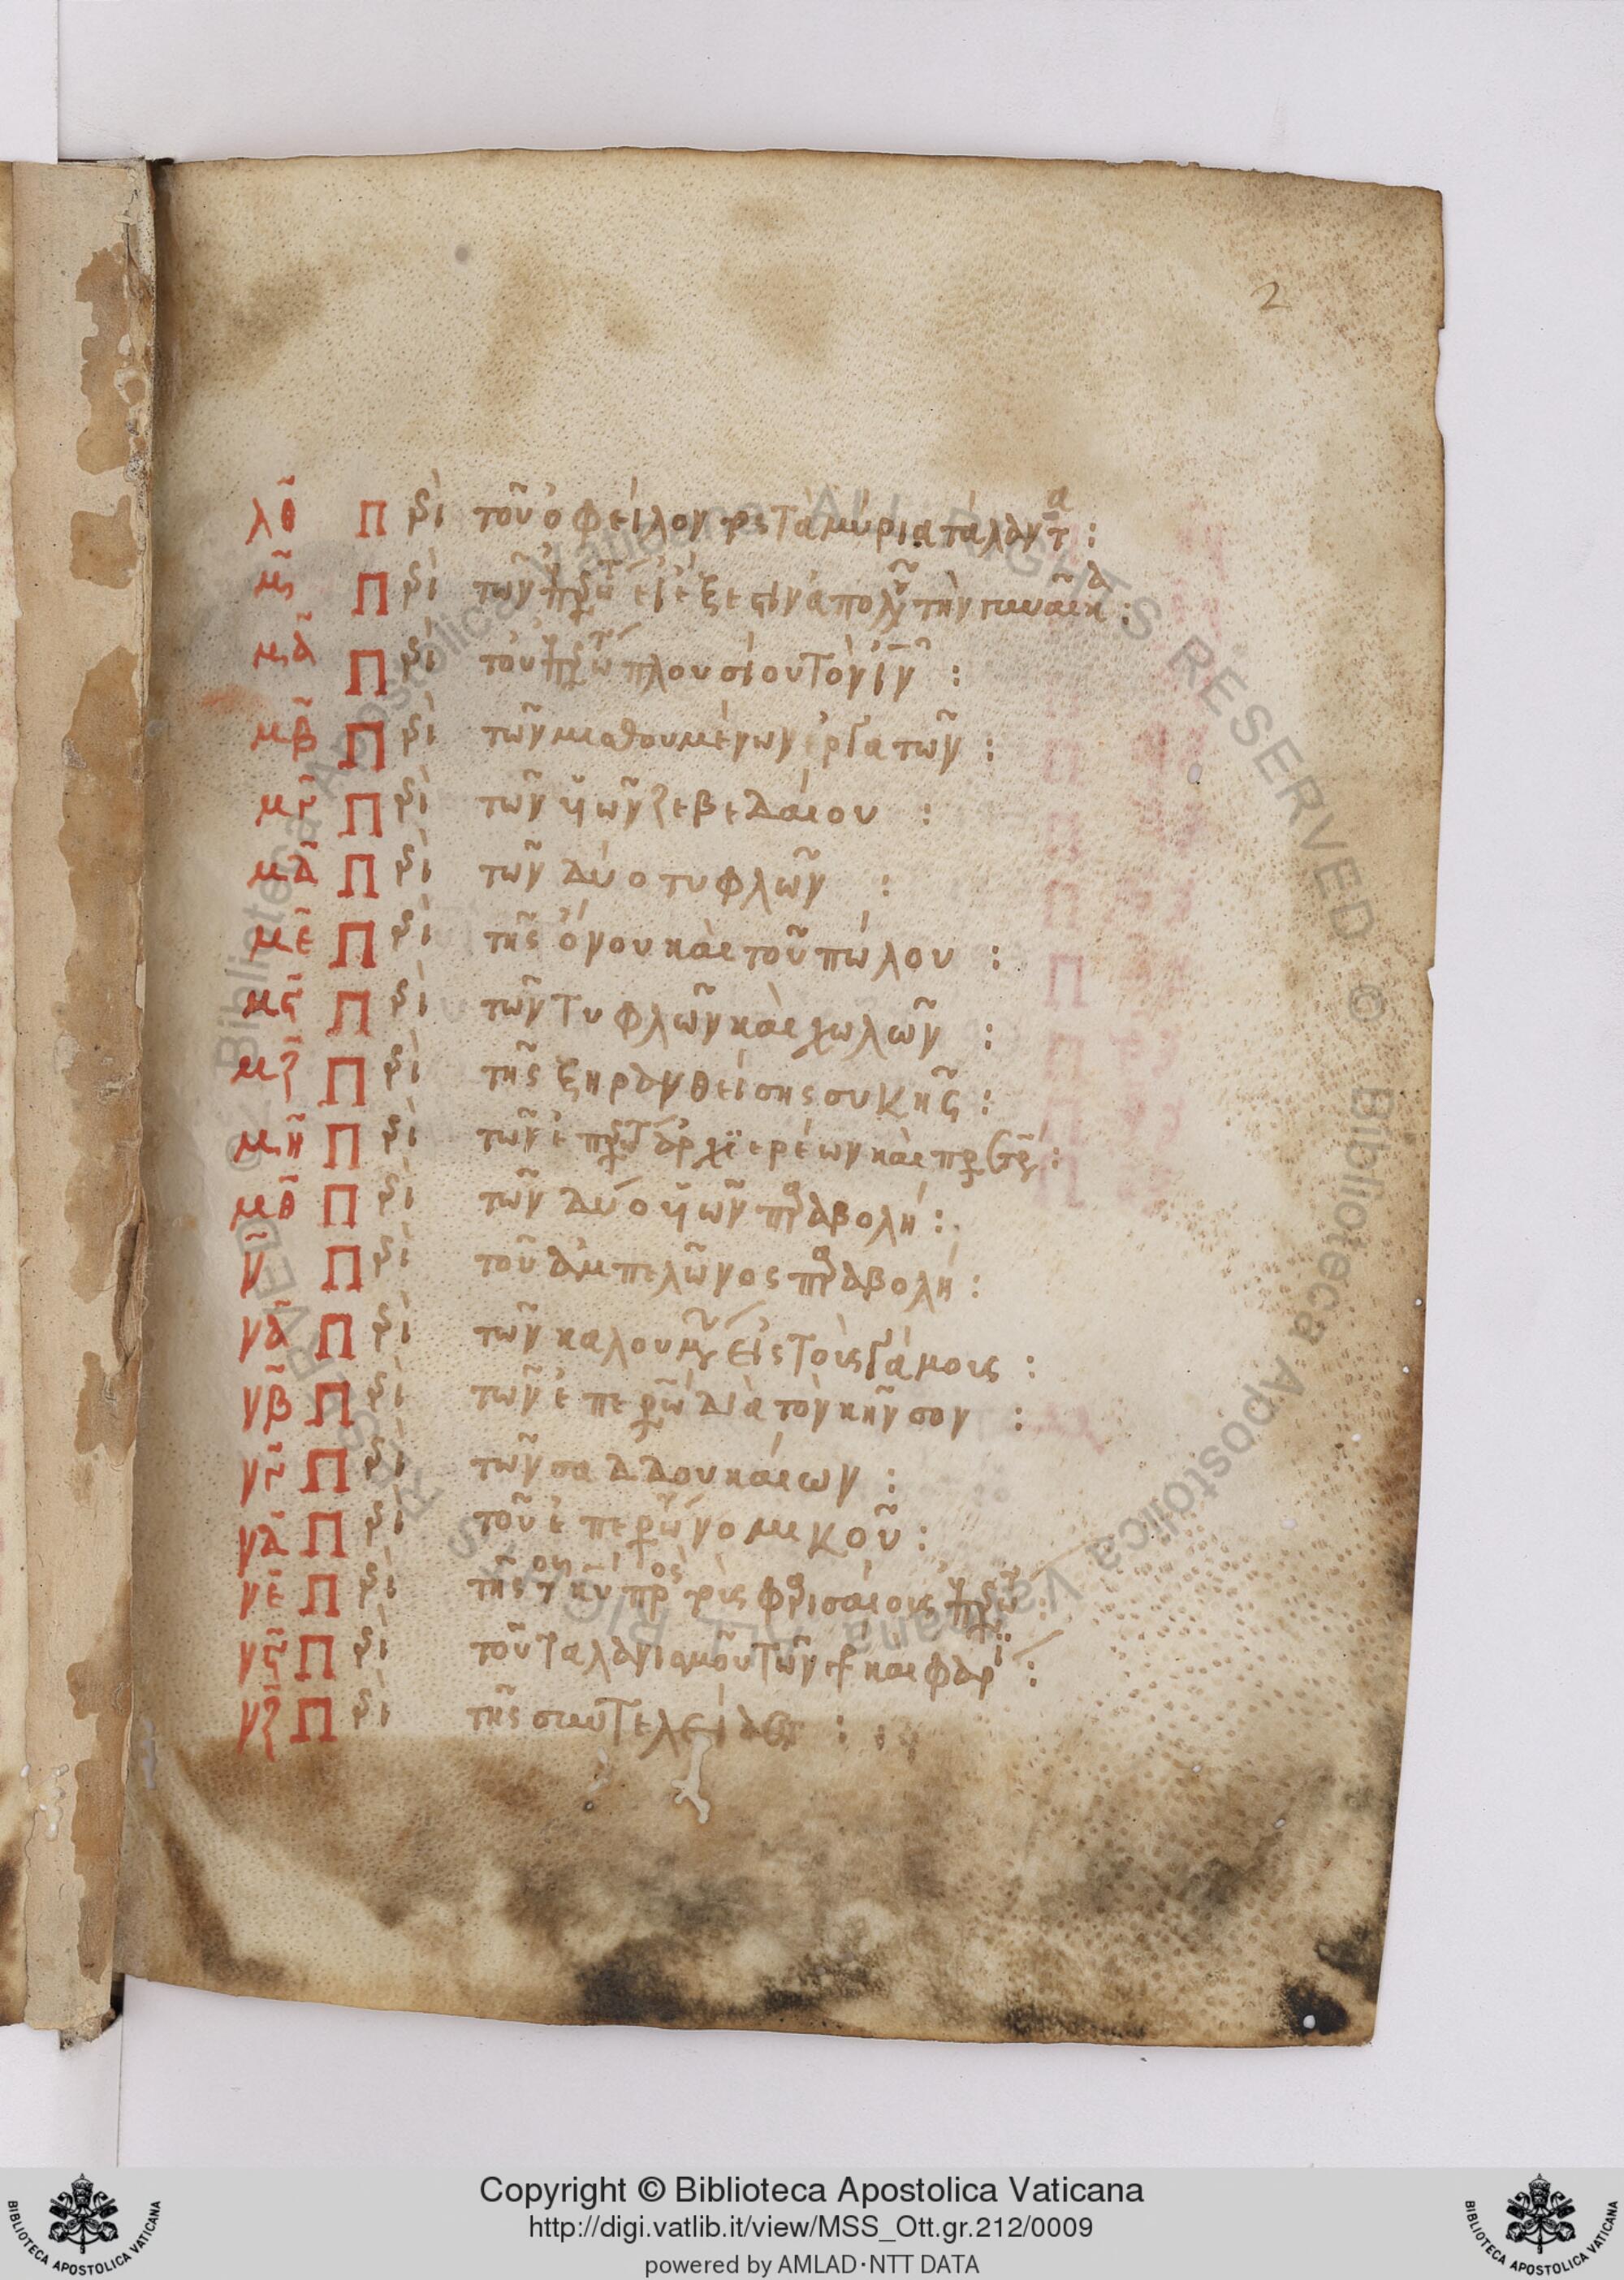 2
λθ Περὶ τοῦ ὀφείλοντος τὰ μύρια τάλαντα :
μ Περὶ τῶν εἰ ἔξεστιν ἀπολῦ τὴν γυναῖκα :
μα Περὶ τοῦ πλουσίου τὸν ιν :
μβ Περὶ τῶν μισθουμένων ἐργατῶν :
μγ Περὶ τῶν ὑῶν ζεβεδαίου :
μδ Περὶ τῶν δύο τυφλῶν :
με Περὶ τῆς ὄνου καὶ τοῦ πώλου :
μς Περὶ τῶν τυφλῶν καὶ χωλῶν :
μζ Περὶ τῆς ξηρανθείσης συκῆς :
μη Περὶ τῶν ἀρχιερέων καὶ πρ :
μθ Περὶ τῶν δύο ὑῶν παραβολή :
ν Περὶ τοῦ ἀμπελῶνος παραβολή :
να Περὶ τῶν καλουμ εἰς τοὺς γάμους :
νβ Περὶ τῶν ἐπερω διὰ τὸν κῆνσον :
νγ Περὶ τῶν σαδδουκαίων :
νδ Περὶ τοῦ ἐπερω νομικοῦ :
νε Περὶ τῆς τοῦ κυ πρὸς τοὺς φαρισαίους :
νς Περὶ τοῦ ταλανισμοῦ τῶν γρ καὶ φαρ :
νζ Περὶ τῆς συντελείας :
Copyright © Biblioteca Apostolica Vaticana
http://digi.vatlib.it/view/MSS_Ott.gr.212/0009
powered by AMLAD·NTT DATA
BIBLIOTECA APOSTOLICA VATICANA
BIBLIOTECA APOSTOLICA VATICANA